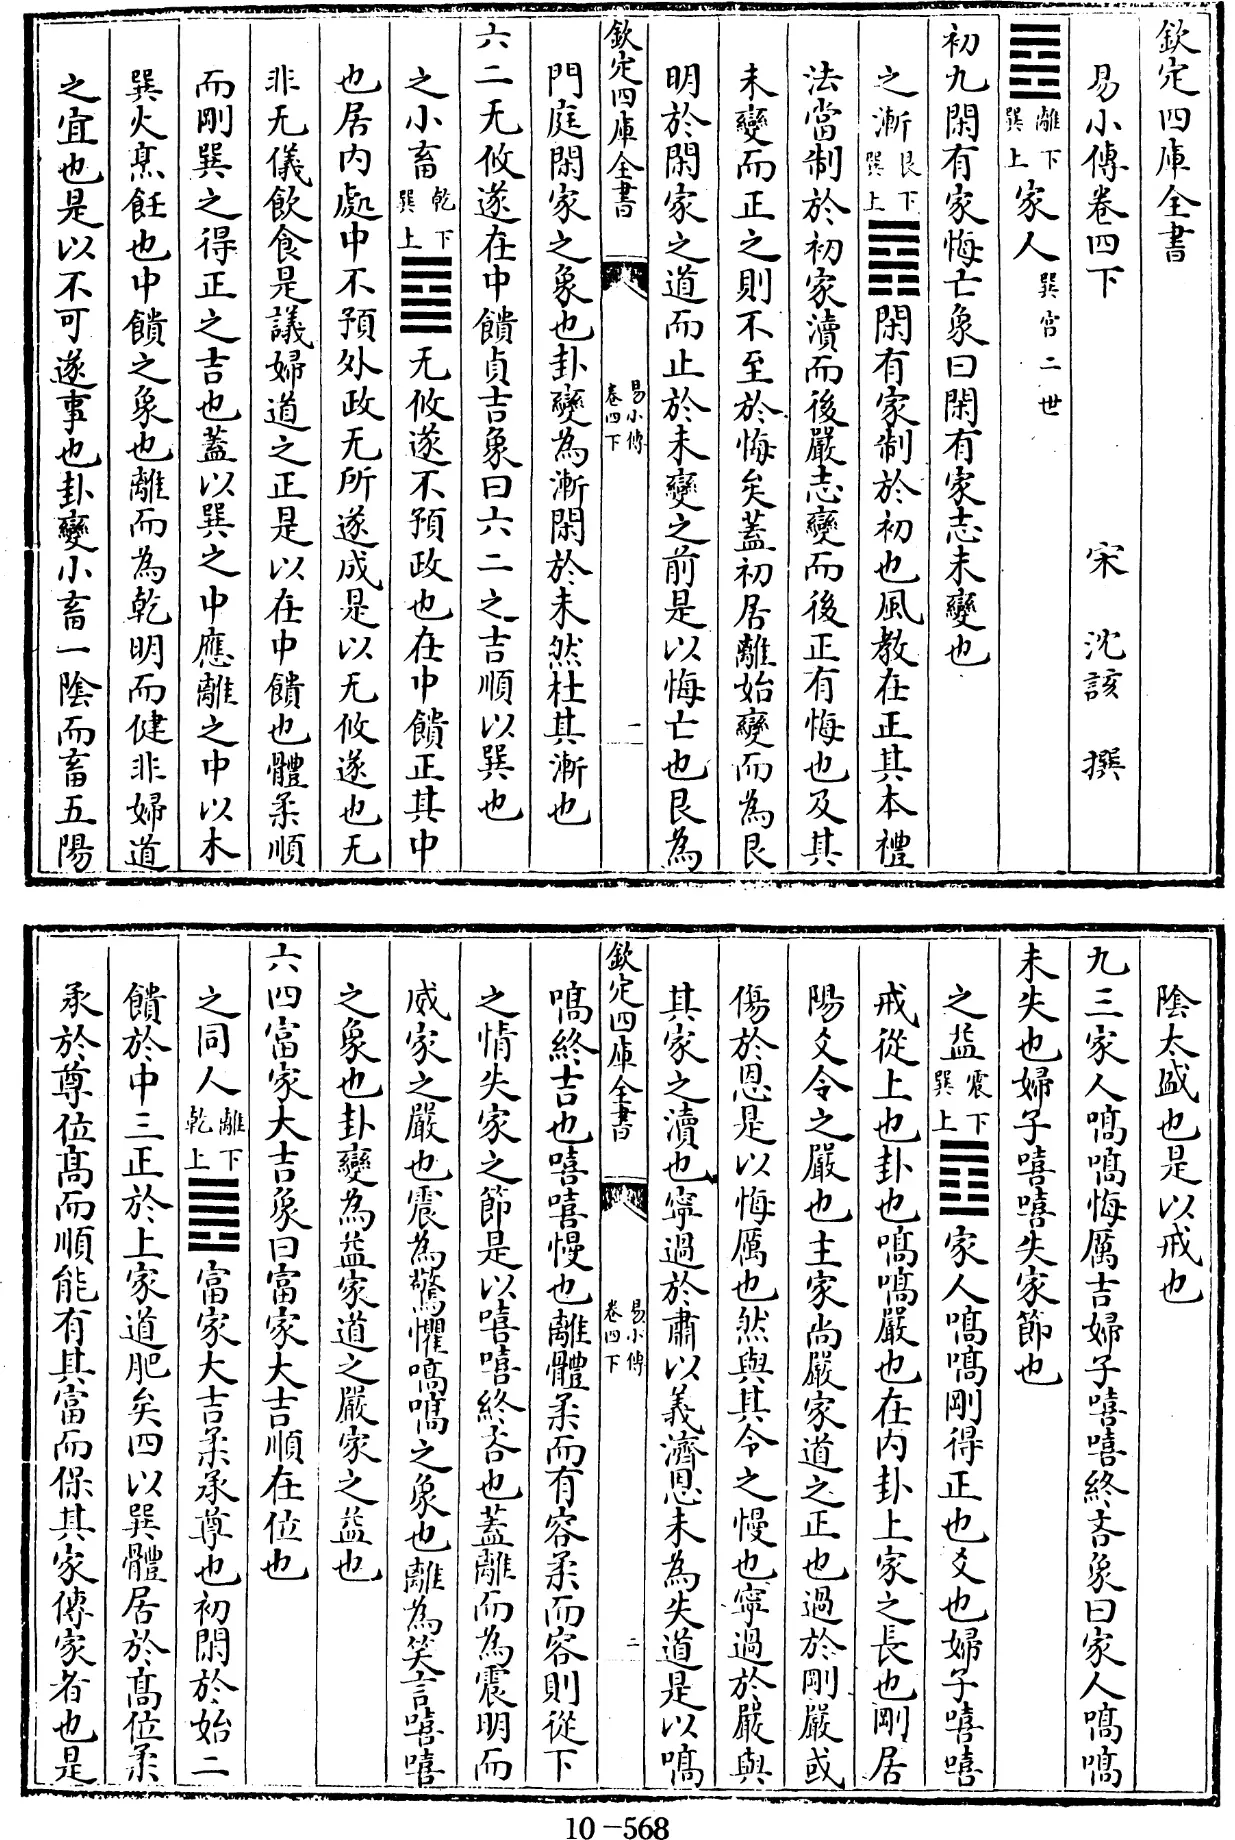 欽定四庫全書
易小傳卷四下
宋 沈該 撰
䷤離下巽上家人巽宮二世
初九閑有家悔亡象曰閑有家志未變也
之漸艮下巽上䷴閑有家制於初也風教在正其本禮
法當制於初家瀆而後嚴志變而後正有悔也及其
未變而正之則不至於悔矣蓋初居離始變而為艮
明於閑家之道而止於未變之前是以悔亡也艮為
欽定四庫全書
易小傳
卷四下
一
門庭閑家之象也卦變為漸閑於未然杜其漸也
六二无攸遂在中饋貞吉象曰六二之吉順以巽也
之小畜乾下巽上䷈无攸遂不預政也在中饋正其中
也居内處中不預外政无所遂成是以无攸遂也无
非无儀飲食是議婦道之正是以在中饋也體柔順
而剛巽之得正之吉也蓋以巽之中應離之中以木
巽火烹飪也中饋之象也離而為乾明而健非婦道
之宜也是以不可遂事也卦變小畜一陰而畜五陽
陰太盛也是以戒也
九三家人嗃嗃悔厲吉婦子嘻嘻終吝象曰家人嗃嗃
未失也婦子嘻嘻失家節也
之益震下巽上䷩家人嗃嗃剛得正也爻也婦子嘻嘻
戒從上也卦也嗃嗃嚴也在内卦上家之長也剛居
陽爻令之嚴也主家尚嚴家道之正也過於剛嚴或
傷於恩是以悔厲也然與其令之慢也寧過於嚴與
其家之瀆也寧過於肅以義濟恩未為失道是以嗃
欽定四庫全書
易小傳
卷四下
二
嗃終吉也嘻嘻慢也離體柔而有容柔而容則從下
之情失家之節是以嘻嘻終吝也蓋離而為震明而
威家之嚴也震為驚懼嗃嗃之象也離為笑言嘻嘻
之象也卦變為益家道之嚴家之益也
六四富家大吉象曰富家大吉順在位也
之同人離下乾上䷌富家大吉柔承尊也初閑於始二
饋於中三正於上家道肥矣四以巽體居於高位柔
承於尊位高而順能有其富而保其家傳家者也是
10-568